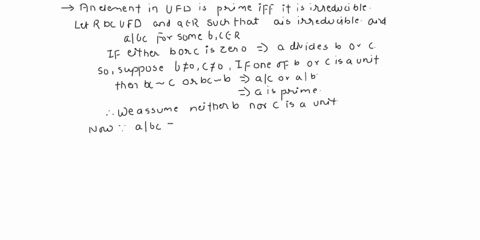 → An element in UFD is prime iff it is irreducible.
Let R be UFD and a∈R such that a is irreducible and
a|bc for some b,c∈R
If either b or c is zero ⇒ a divides b or c.
So, suppose b≠0, c≠0, If one of b or c is a unit
then bc~c or bc~b ⇒ a|c or a|b.
⇒ a is prime.
∴ We assume neither b nor c is a unit
Now ∵ a|bc =